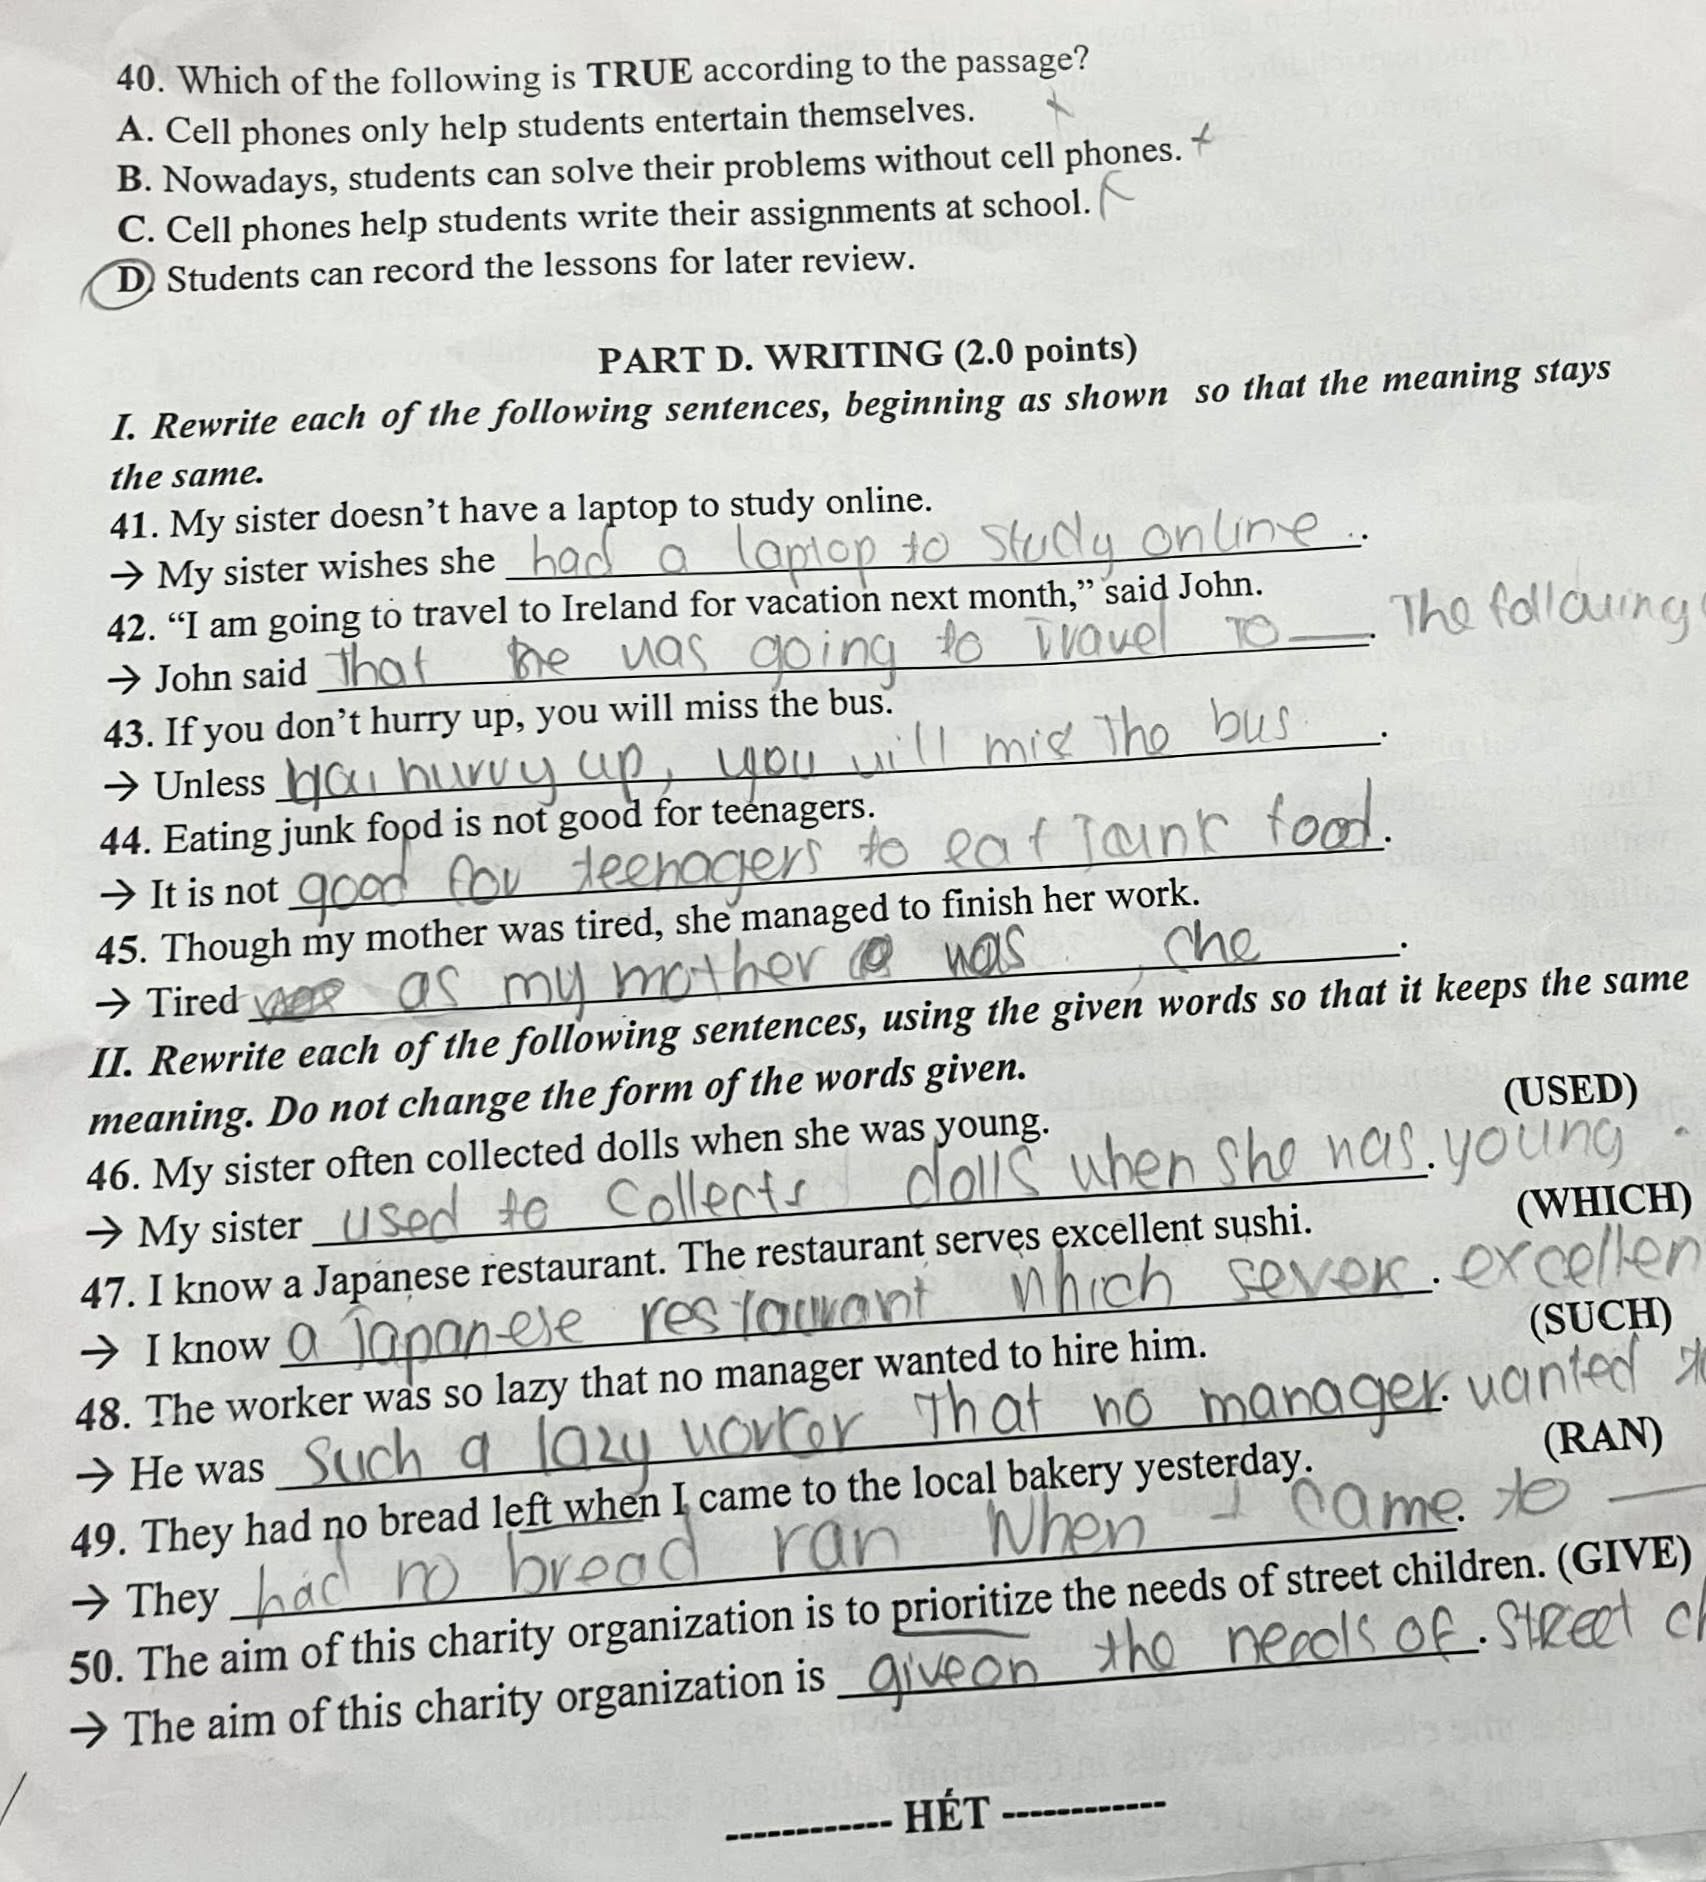 40. Which of the following is TRUE according to the passage?
A. Cell phones only help students entertain themselves.
B. Nowadays, students can solve their problems without cell phones.
C. Cell phones help students write their assignments at school.
D. Students can record the lessons for later review.
PART D. WRITING (2.0 points)
I. Rewrite each of the following sentences, beginning as shown so that the meaning stays
the same.
41. My sister doesn't have a laptop to study online.
→ My sister wishes she had a laptop to study online.
42. “I am going to travel to Ireland for vacation next month,” said John.
→ John said that he was going to travel to ___. The following
43. If you don't hurry up, you will miss the bus.
→ Unless you hurry up, you will mis the bus.
44. Eating junk food is not good for teenagers.
→ It is not good for teenagers to eat junk food.
45. Though my mother was tired, she managed to finish her work.
→ Tired as my mother was, she ___.
II. Rewrite each of the following sentences, using the given words so that it keeps the same
meaning. Do not change the form of the words given.
46. My sister often collected dolls when she was young. (USED)
→ My sister used to collects dolls when she was. young.
47. I know a Japanese restaurant. The restaurant serves excellent sushi. (WHICH)
→ I know a Japanese restaurant which . excellen
48. The worker was so lazy that no manager wanted to hire him. (SUCH)
→ He was such a lazy worker that no manager. wanted to
49. They had no bread left when I came to the local bakery yesterday. (RAN)
→ They had no bread ran when I came. to —
50. The aim of this charity organization is to prioritize the needs of street children. (GIVE)
→ The aim of this charity organization is giveon the needs of. street ch
------------ HẾT ------------